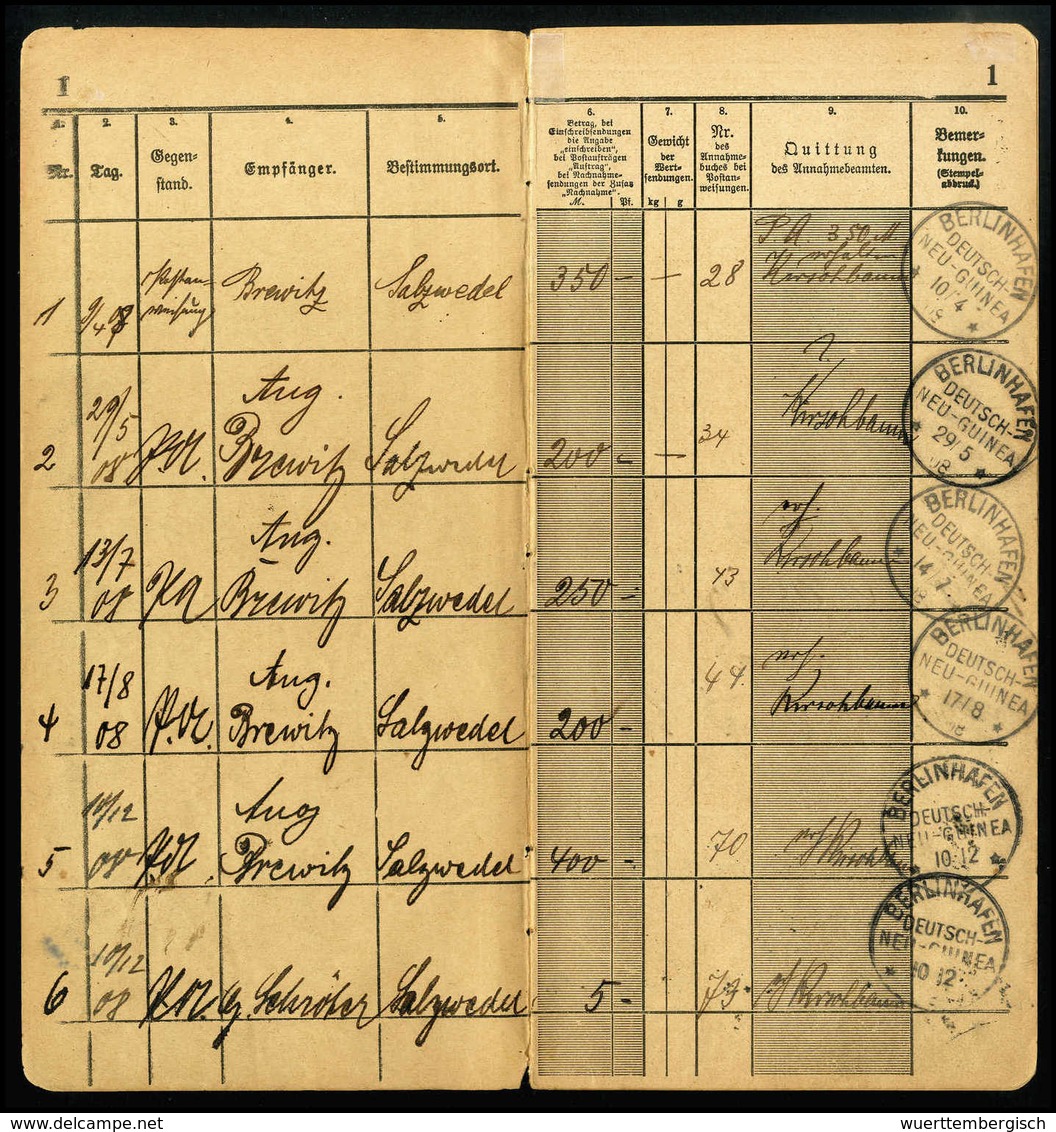 1 1
1. Nr.
2. Tag.
3. Gegen-
stand.
4. Empfänger.
5. Bestimmungsort.
6. Betrag, bei
Einschreibsendungen
die Angabe
„einschreiben",
bei Postaufträgen
„Auftrag",
bei Nachnahme-
sendungen der Zusatz
„Nachnahme".
M. Pf.
7. Gewicht
der
Wert-
sendungen.
kg g
8. Nr.
des
Annahme-
buches bei
Postan-
weisungen.
9. Quittung
des Annahmebeamten.
10. Bemer-
kungen.
(Stempel-
abdruck.)
1 9/4 08 Postan-
weisung Brewitz Salzwedel 350 – – 28
PA 350 M
erhalten
Kirschbaum
BERLINHAFEN
DEUTSCH-
NEU-GUINEA
10/4
08
2 29/5
08 P.A. Aug.
Brewitz Salzwedel 200 – – 34
Kirschbaum
BERLINHAFEN
DEUTSCH-
NEU-GUINEA
29/5
08
3 13/7
08 PA Aug.
Brewitz Salzwedel 250 – 43
erh.
Kirschbaum
BERLINHAFEN
DEUTSCH-
NEU-GUINEA
14/7
08
4 17/8
08 P.A. Aug.
Brewitz Salzwedel 200 – 44.
erh.
Kirschbaum
BERLINHAFEN
DEUTSCH-
NEU-GUINEA
17/8
08
5 10/12
08 P.A. Aug
Brewitz Salzwedel 400 – 70
erh Kirschbaum
BERLINHAFEN
DEUTSCH-
NEU-GUINEA
10 12
6 10/12
08 P.A. G. Schröter Salzwedel 5 – 73
Kirschbaum
BERLINHAFEN
DEUTSCH-
NEU-GUINEA
10 12
www.delcampe.net wuerttembergisch